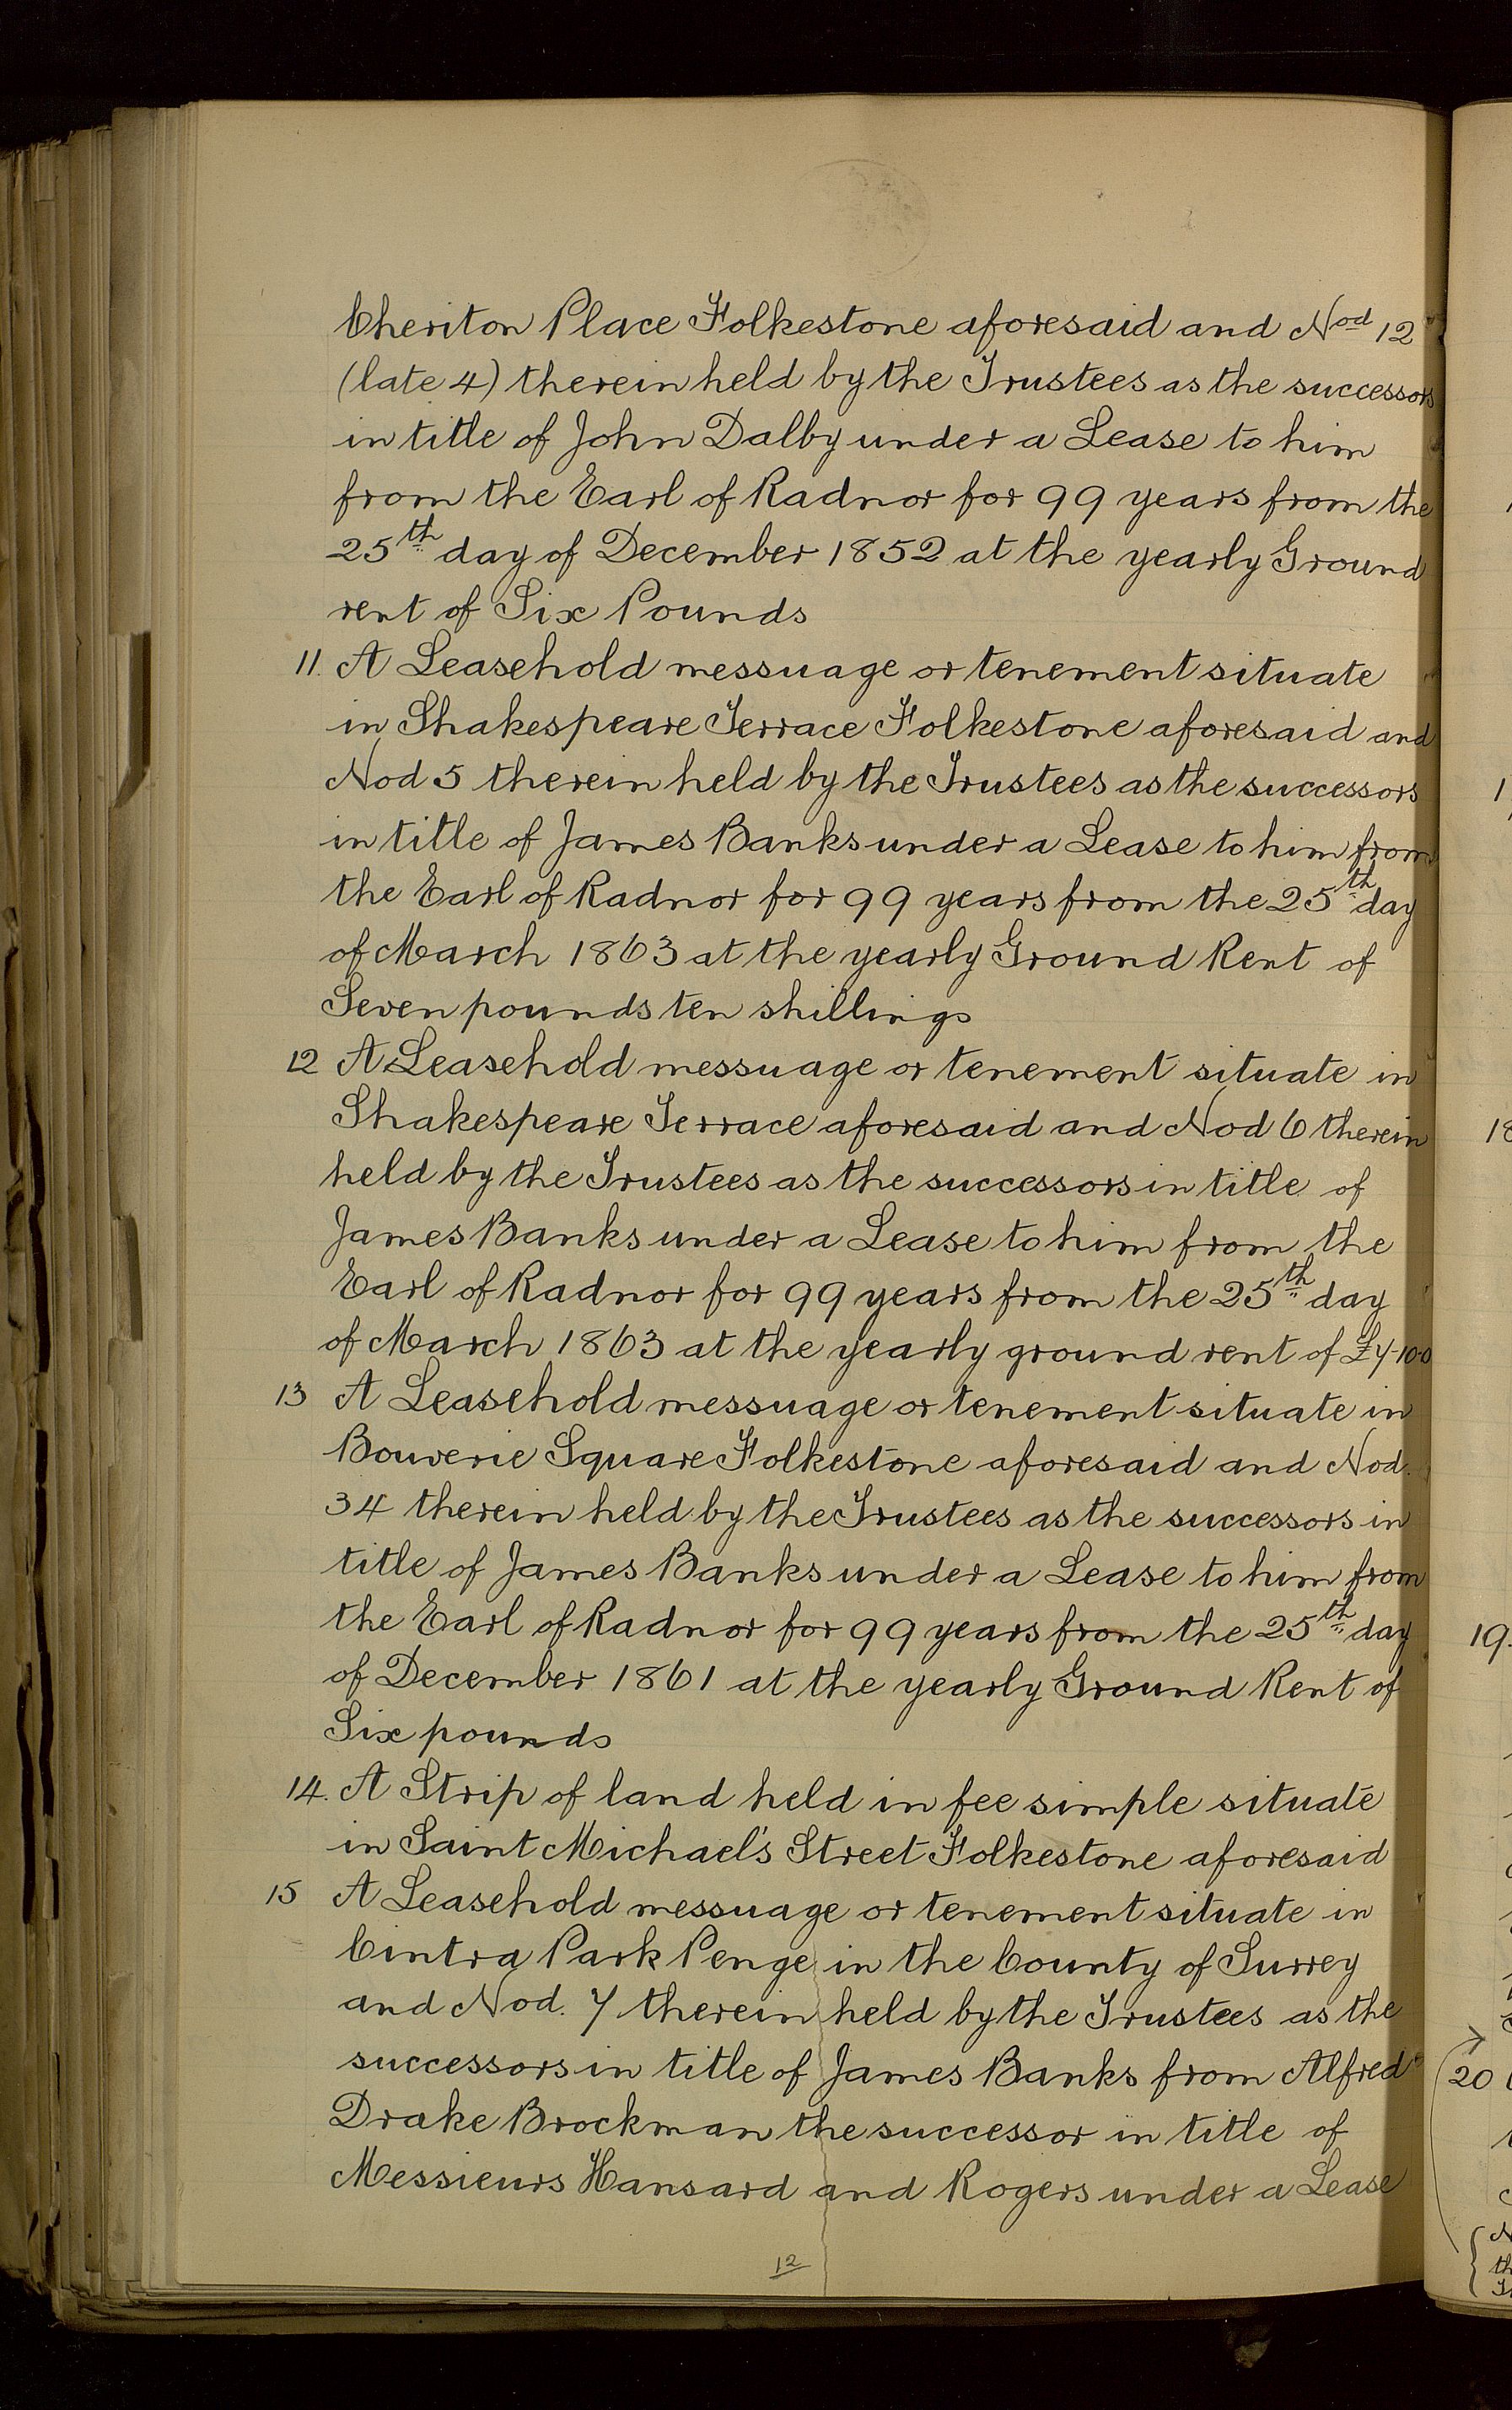 Cheriton Place Folkestone aforesaid and Nod 12
(late 4) therein held by the Trustees as the successors
in title of John Dalby under a Lease to him
from the Earl of Radnor for 99 years from the
25th day of December 1852 at the yearly Ground
rent of Six Pounds
11. A Leasehold messuage or tenement situate
in Shakespeare Terrace Folkestone aforesaid and
Nod 5 therein held by the Trustees as the successors
in title of James Banks under a Lease to him from
the Earl of Radnor for 99 years from the 25th day
of March 1863 at the yearly Ground Rent of
Seven pounds ten shillings
12 A Leasehold messuage or tenement situate in
Shakespeare Terrace aforesaid and Nod 6 therein
held by the Trustees as the successors in title of
James Banks under a Lease to him from the
Earl of Radnor for 99 years from the 25th day
of March 1863 at the yearly ground rent of £7-10-0
13 A Leasehold messuage or tenement situate in
Bouverie Square Folkestone aforesaid and Nod.
34 therein held by the Trustees as the successors in
title of James Banks under a Lease to him from
the Earl of Radnor for 99 years from the 25th day
of December 1861 at the yearly Ground Rent of
Six pounds
14. A Strip of land held in fee simple situate
in Saint Michael's Street Folkestone aforesaid
15 A Leasehold messuage or tenement situate in
Cintra Park Penge in the County of Surrey
and Nod. 7 therein held by the Trustees as the
successors in title of James Banks from Alfred
Drake Brockman the successor in title of
Messieurs Hansard and Rogers under a Lease
12
19.
20